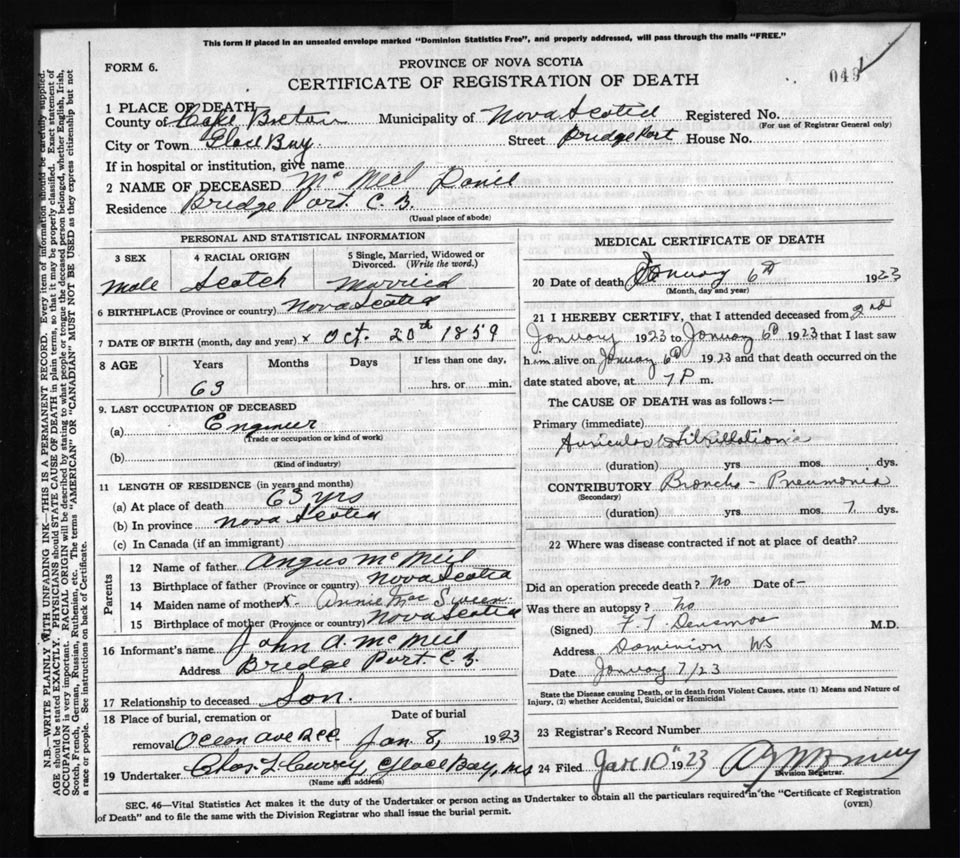 This form if placed in an unsealed envelope marked "Dominion Statistics Free", and properly addressed, will pass through the mails "FREE."
FORM 6.
PROVINCE OF NOVA SCOTIA
CERTIFICATE OF REGISTRATION OF DEATH
049
1 PLACE OF DEATH
County of Cape Breton Municipality of Nova Scotia Registered No.
(For use of Registrar General only)
City or Town Glace Bay. Street Bridge Port House No.
If in hospital or institution, give name
2 NAME OF DECEASED Mc Neil Daniel
Residence Bridge Port. C. B.
(Usual place of abode)
PERSONAL AND STATISTICAL INFORMATION
3 SEX 4 RACIAL ORIGIN 5 Single, Married, Widowed or Divorced. (Write the word.)
Male Scotch Married
6 BIRTHPLACE (Province or country) Nova Scotia
7 DATE OF BIRTH (month, day and year) x Oct. 20th 1859
8 AGE Years Months Days If less than one day,
63 hrs. or min.
9. LAST OCCUPATION OF DECEASED
(a) Engineer
(Trade or occupation or kind of work)
(b)
(Kind of industry)
11 LENGTH OF RESIDENCE (in years and months)
(a) At place of death 63 yrs
(b) In province Nova Scotia
(c) In Canada (if an immigrant)
Parents
12 Name of father Angus Mc Neil
13 Birthplace of father (Province or country) Nova Scotia
14 Maiden name of mother x Annie Mac Sween.
15 Birthplace of mother (Province or country) Nova Scotia
16 Informant's name John A. Mc Neil
Address Bridge Port. C. B.
17 Relationship to deceased Son.
18 Place of burial, cremation or Date of burial
removal Ocean Ave Jan 8, 1923
19 Undertaker Chas. L. Curry, Glace Bay, NS
(Name and address)
MEDICAL CERTIFICATE OF DEATH
20 Date of death January 6th 1923
(Month, day and year)
21 I HEREBY CERTIFY, that I attended deceased from 2nd
January 1923 to January 6th 1923 that I last saw
him alive on January 6th 1923 and that death occurred on the
date stated above, at 7 P m.
The CAUSE OF DEATH was as follows:—
Primary (immediate)
Auricular Fibrillation
(duration) yrs mos. dys.
CONTRIBUTORY Broncho - Pneumonia
(Secondary)
(duration) yrs. mos. 7 dys.
22 Where was disease contracted if not at place of death?
Did an operation precede death? No Date of—
Was there an autopsy? No
(Signed) M.D.
Address Dominion NS
Date January 7/23
State the Disease causing Death, or in death from Violent Causes, state (1) Means and Nature of
Injury, (2) whether Accidental, Suicidal or Homicidal
23 Registrar's Record Number
24 Filed Jan 10th 1923
Division Registrar.
SEC. 46—Vital Statistics Act makes it the duty of the Undertaker or person acting as Undertaker to obtain all the particulars required in the "Certificate of Registration
of Death" and to file the same with the Division Registrar who shall issue the burial permit.
(OVER)
N.B.—WRITE PLAINLY WITH UNFADING INK—THIS IS A PERMANENT RECORD. Every item of information should be carefully supplied.
AGE should be stated EXACTLY. PHYSICIANS should STATE CAUSE OF DEATH in plain terms, so that it may be properly classified. Exact statement of
OCCUPATION is very important. RACIAL ORIGIN will be described by stating to what people or tongue the deceased person belonged, whether English, Irish,
Scotch, French, German, Russian, Ruthenian, etc. The terms "AMERICAN" OR "CANADIAN" MUST NOT BE USED as they express citizenship but not
a race or people. See instructions on back of Certificate.